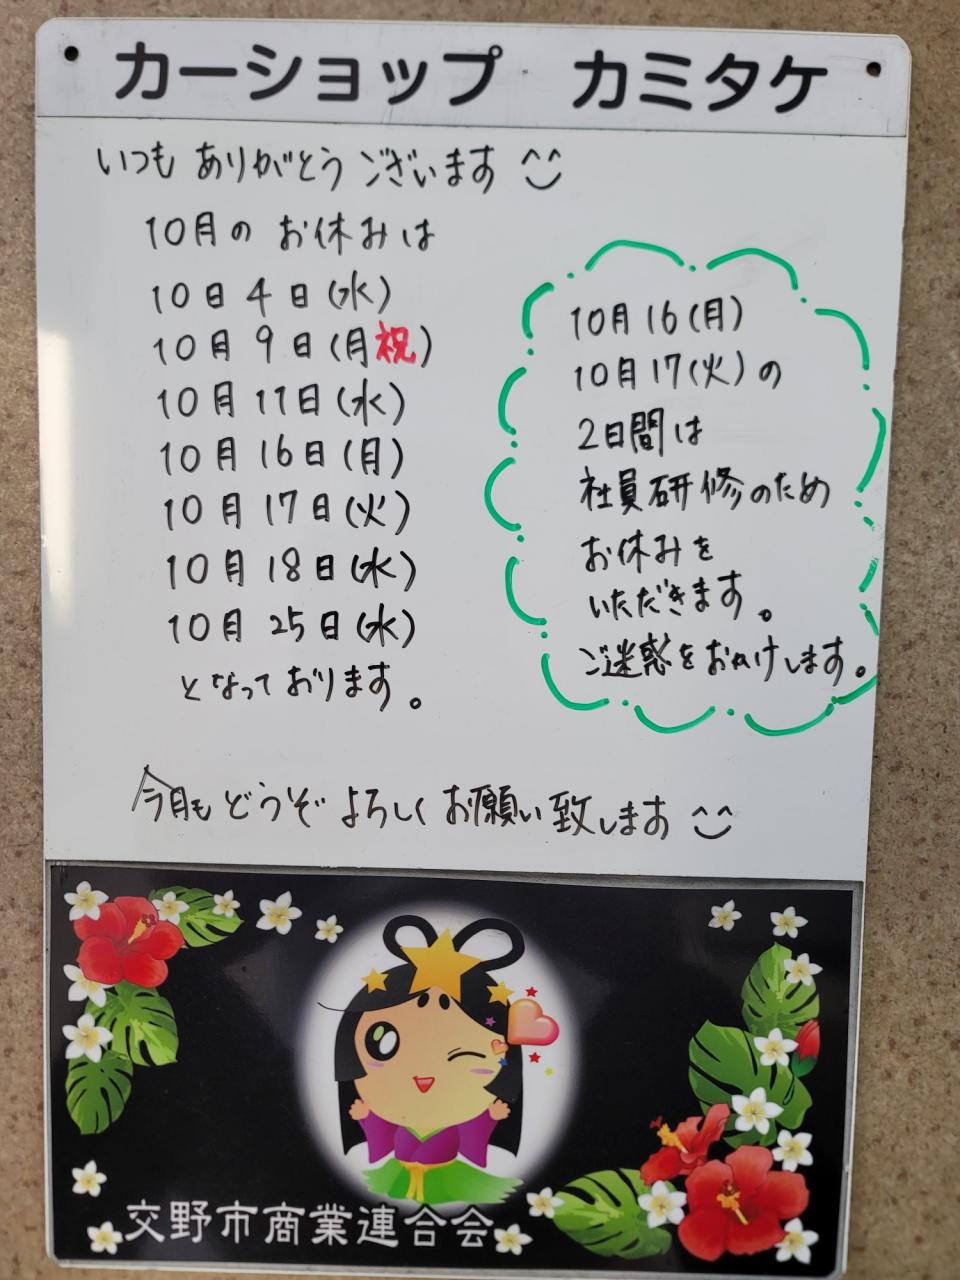 カーショップ カミタケ
いつも ありがとう ございます
10月の お休みは
10日 4日(水)
10月 9日(月祝)
10月 11日(水)
10月 16日(月)
10月 17日(火)
10月 18日(水)
10月 25日(水)
となっております。
10月16(月)
10月17(火)の
2日間は
社員研修のため
お休みを
いただきます。
ご迷惑をおかけします。
今月も どうぞ よろしく お願い致します
交野市商業連合会